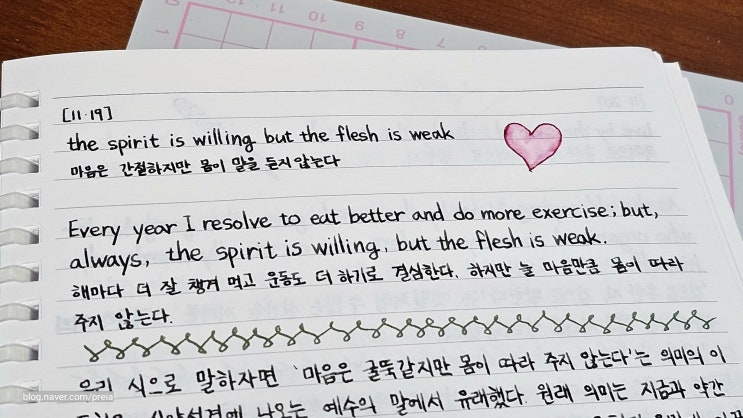 [11·19]
the spirit is willing but the flesh is weak
마음은 간절하지만 몸이 말을 듣지않는다
Every year I resolve to eat better and do more exercise; but,
always, the spirit is willing, but the flesh is weak.
해마다 더 잘 챙겨 먹고 운동도 더 하기로 결심한다. 하지만 늘 마음만큼 몸이 따라
주지 않는다.
우리 식으로 말하자면 '마음은 굴뚝같지만 몸이 따라 주지 않는다'는 의미의 이
신약성경에 나오는 예수의 말에서 유래했다. 원래 의미는 지금과 약간
blog.naver.com/preia